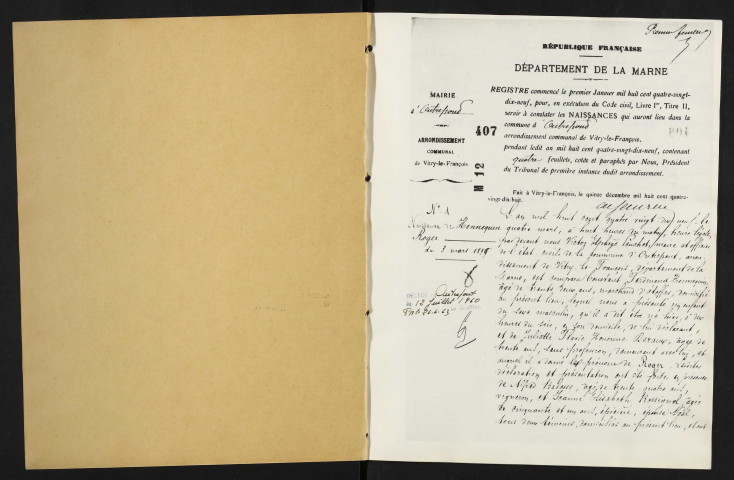 Premier feuillet
RÉPUBLIQUE FRANÇAISE
DÉPARTEMENT DE LA MARNE
MAIRIE
d'Outrepont
ARRONDISSEMENT
COMMUNAL
de Vitry-le-François
407
M 12
REGISTRE commencé le premier Janvier mil huit cent quatre-vingt-
dix-neuf, pour, en exécution du Code civil, Livre Ier, Titre II,
servir à constater les NAISSANCES qui auront lieu dans la
commune d'Outrepont
arrondissement communal de Vitry-le-François,
pendant ledit an mil huit cent quatre-vingt-dix-neuf, contenant
quatre feuillets, cotés et paraphés par Nous, Président
du Tribunal de première instance dudit arrondissement.
Fait à Vitry-le-François, le quinze décembre mil huit cent quatre-
vingt-dix-huit.
N° 1
Naissance de Hennequin
Roger
du 3 mars 1899
Outrepont
12 Juillet 1960
L'an mil huit cent quatre vingt dix neuf, le
quatre mars, à huit heures du matin, heure légale,
par devant nous Victor
de l'état civil de la commune d'Outrepont, arron
dissement de Vitry-le-François, département de la
Marne, est comparu Constant Ferdinand Hennequin
âgé de trente deux ans, marchand d'étoffes, domicilié
au présent lieu, lequel nous a présenté un enfant
du sexe masculin, qu'il a dit être né hier, à
heures du soir, en son domicile, de lui déclarant,
et de Juliette Honorine âgée de
trente ans, sans profession, demeurant avec lui, et
auquel il a donné le prénom de Roger. Lesdites
déclaration et présentation ont été faites en présence
de Alfred âgé de trente quatre ans,
vigneron, et Jeanne Elisabeth âgée
de cinquante et un ans, épicière, épouse
tous deux témoins, domiciliés au présent lieu, et ont